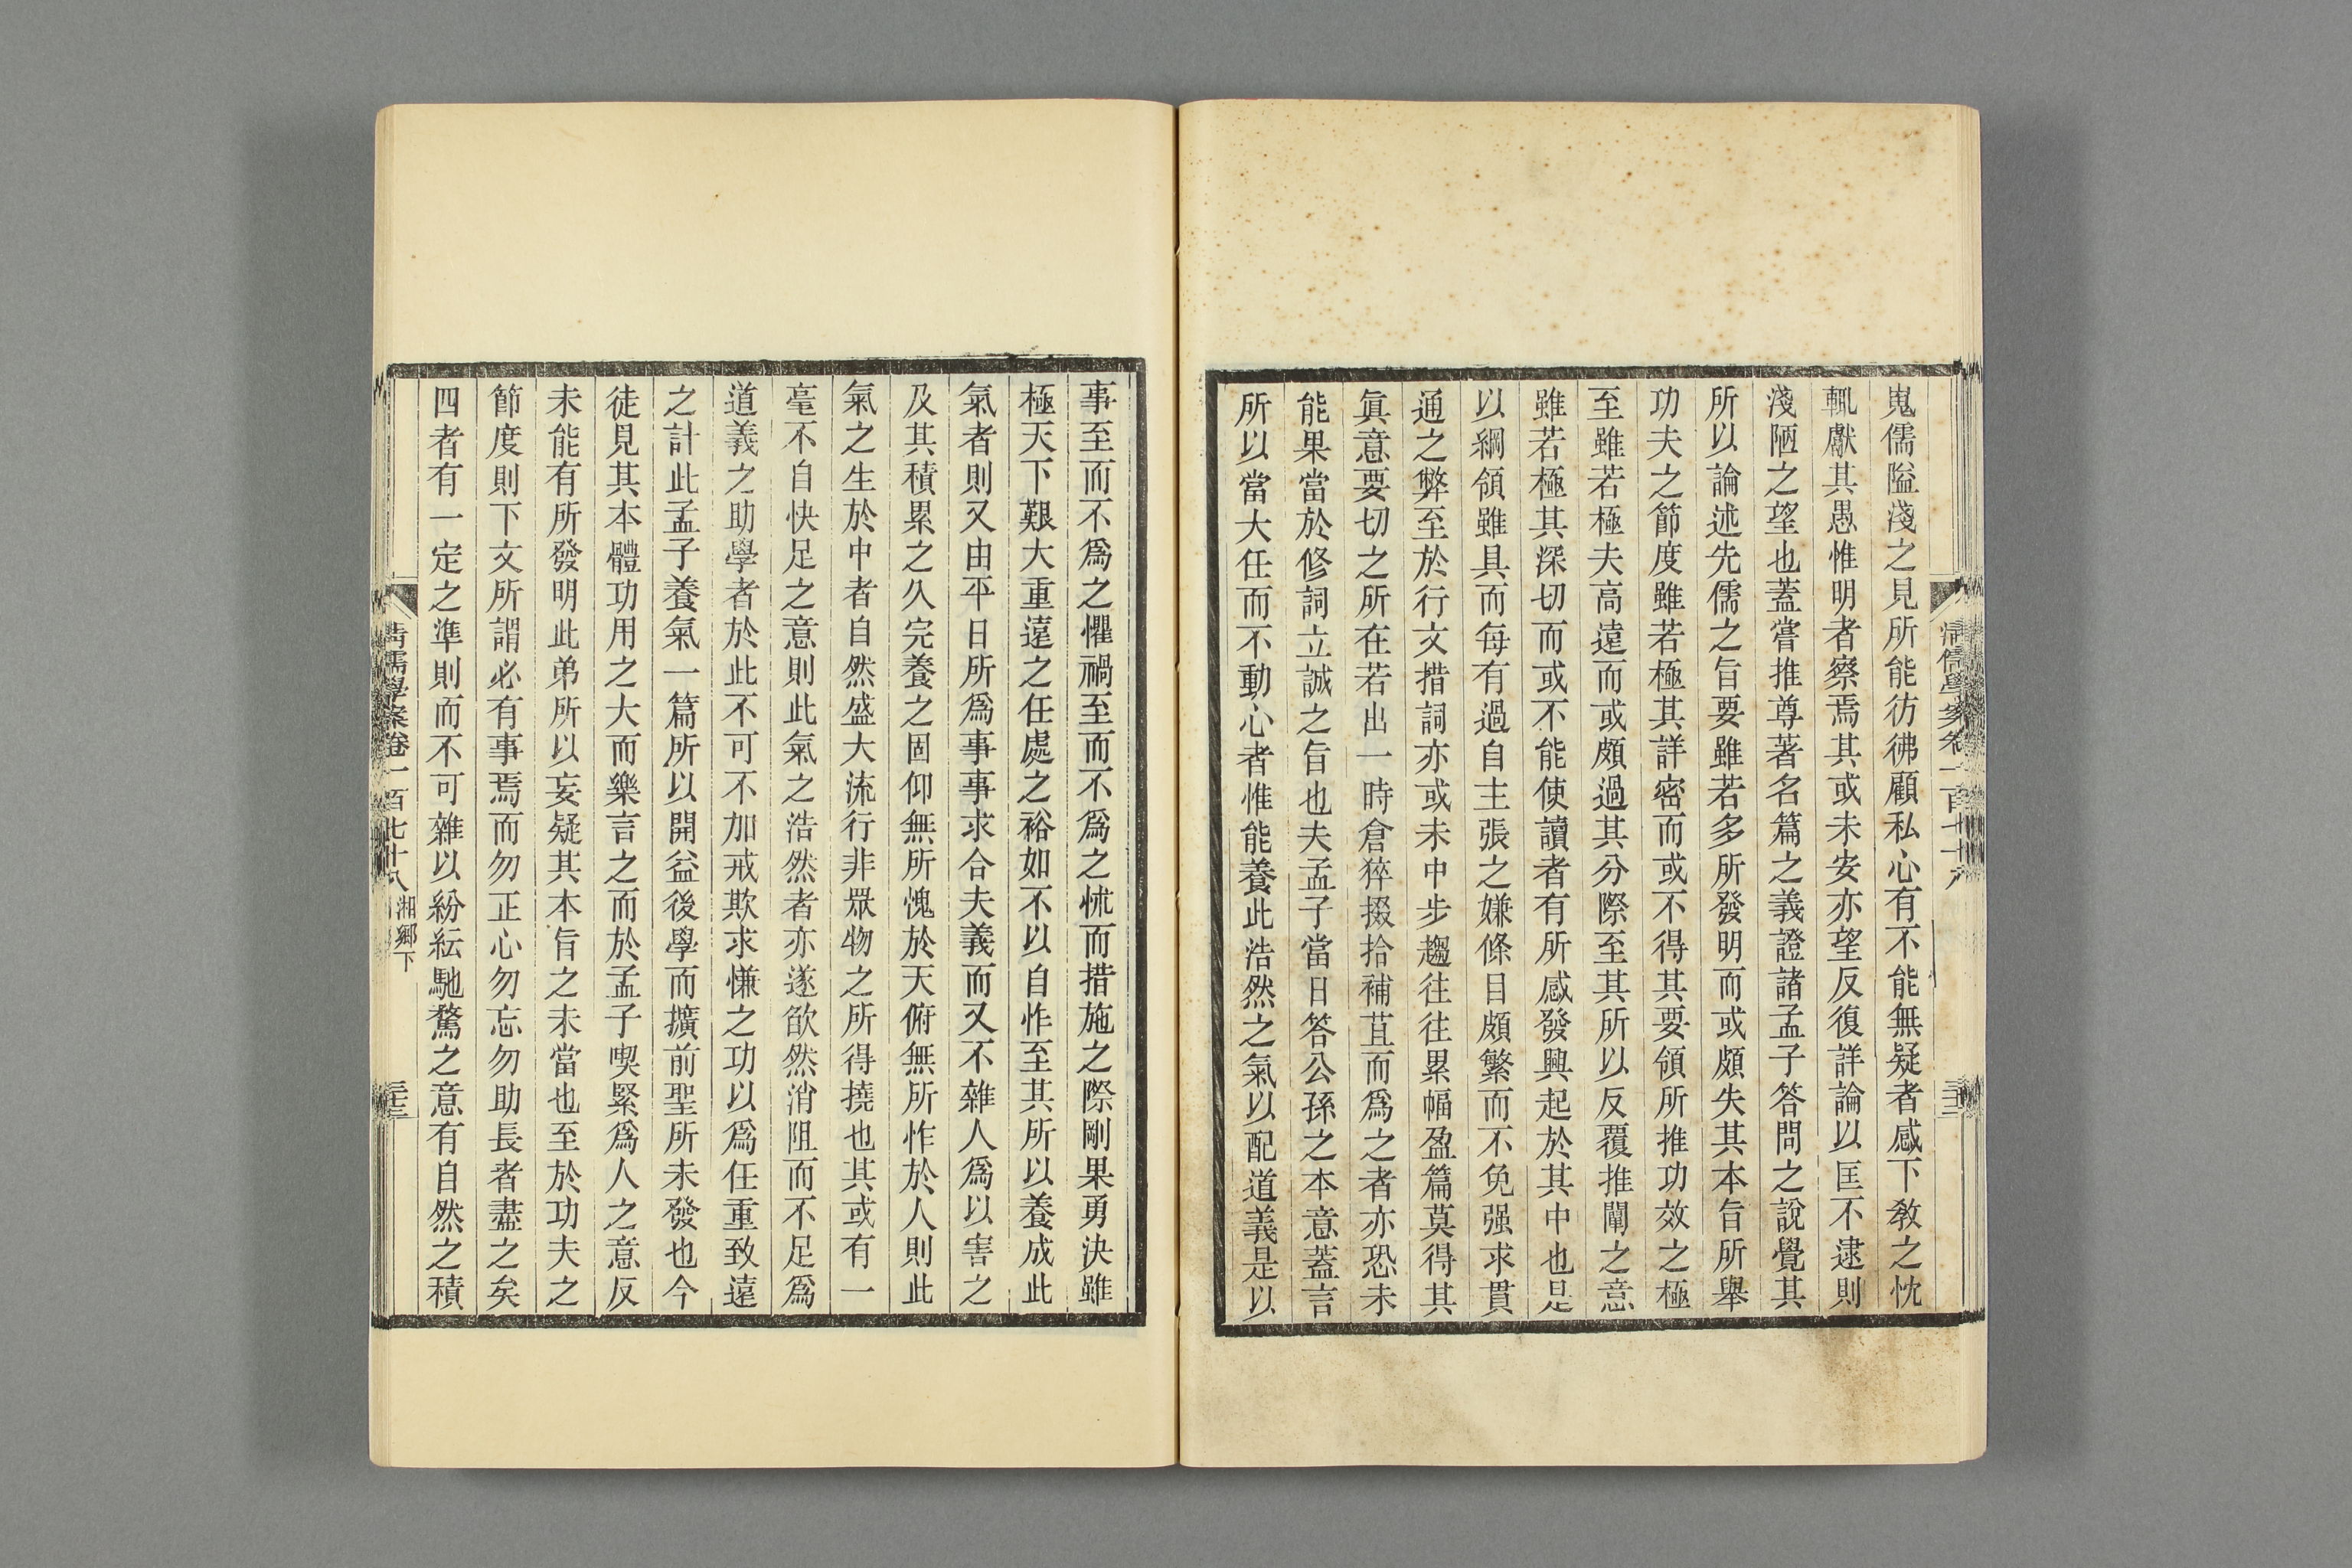 嵬儒隘淺之見所能彷彿顧私心有不能無疑者感下教之忱
輒獻其愚惟明者察焉其或未安亦望反復詳論以匡不逮則
淺陋之望也蓋嘗推尊著名篇之義證諸孟子答問之說覺其
所以論述先儒之旨要雖若多所發明而或頗失其本旨所舉
功夫之節度雖若極其詳密而或不得其要領所推功效之極
至雖若極夫高遠而或頗過其分際至其所以反覆推闡之意
雖若極其深切而或不能使讀者有所感發興起於其中也是
以綱領雖具而每有過自主張之嫌條目頗繁而不免强求貫
通之弊至於行文措詞亦或未中步趨往往累幅盈篇莫得其
眞意要切之所在若出一時倉猝掇拾補苴而爲之者亦恐未
能果當於修詞立誠之旨也夫孟子當日答公孫之本意蓋言
所以當大任而不動心者惟能養此浩然之氣以配道義是以
清儒學案卷一百七十八
三十二
事至而不爲之懼禍至而不爲之怵而措施之際剛果勇決雖
極天下艱大重遠之任處之裕如不以自怍至其所以養成此
氣者則又由平日所爲事事求合夫義而又不雜人爲以害之
及其積累之久完養之固仰無所愧於天俯無所怍於人則此
氣之生於中者自然盛大流行非眾物之所得撓也其或有一
毫不自快足之意則此氣之浩然者亦遂欿然消阻而不足爲
道義之助學者於此不可不加戒欺求慊之功以爲任重致遠
之計此孟子養氣一篇所以開益後學而擴前聖所未發也今
徒見其本體功用之大而樂言之而於孟子喫緊爲人之意反
未能有所發明此弟所以妄疑其本旨之未當也至於功夫之
節度則下文所謂必有事焉而勿正心勿忘勿助長者盡之矣
四者有一定之準則而不可雜以紛紜馳騖之意有自然之積
清儒學案卷一百七十八 湘鄉下
三十三